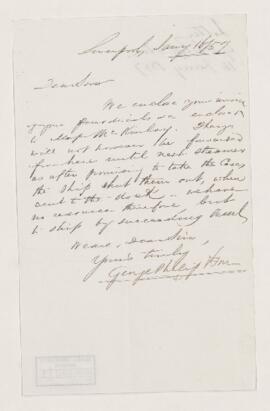 Liverpool, Jany 16/57
Dear Sirs
We enclose your invoice
of your Periodicals as enclosed
to Mess McKinlay. They
will not however be forwarded
from here until next steamer
as after promising to take the Case
the ship shut them out, when
sent to the dock. we have
no resource therefore but
to ship by succeeding vessel
We are, Dear Sirs,
Yours truly
George Philip & Son